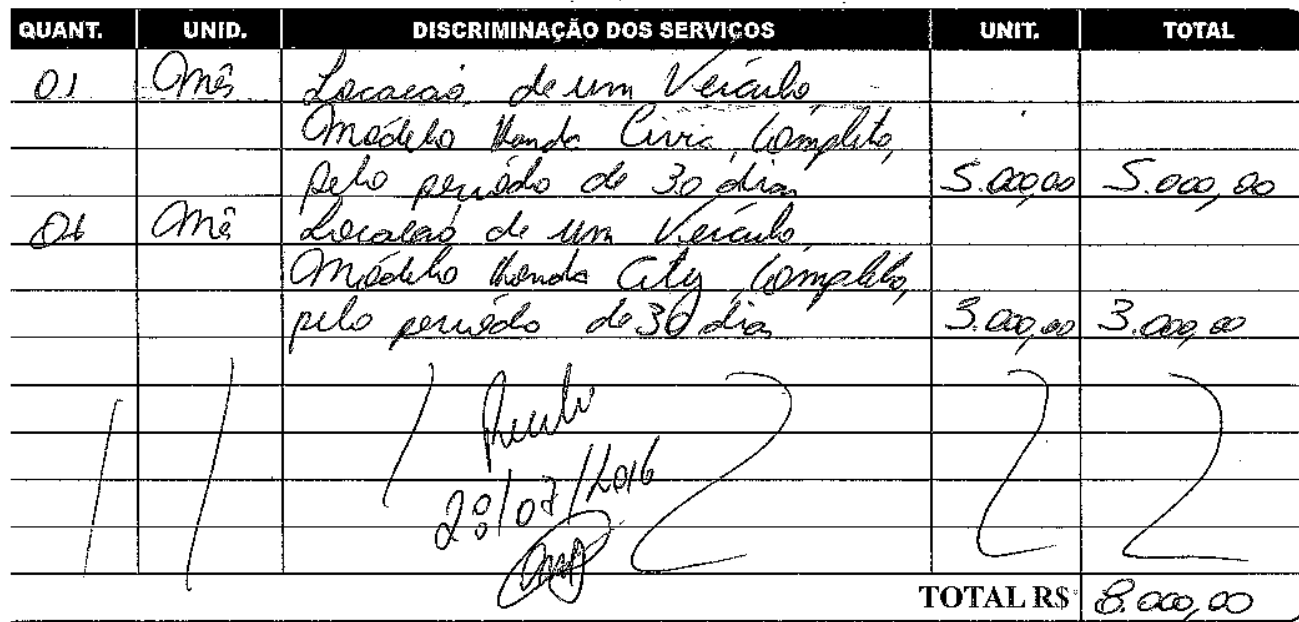 QUANT. UNID. DISCRIMINAÇÃO DOS SERVIÇOS UNIT. TOTAL
01 Mês Locação de um Veículo
Modelo Honda Civic, Completo,
pelo período de 30 dias 5.000,00 5.000,00
01 Mê Locação de um Veículo
Modelo Honda City Completo,
pelo período de 30 dias 3.000,00 3.000,00
/2016
TOTAL R$ 8.000,00